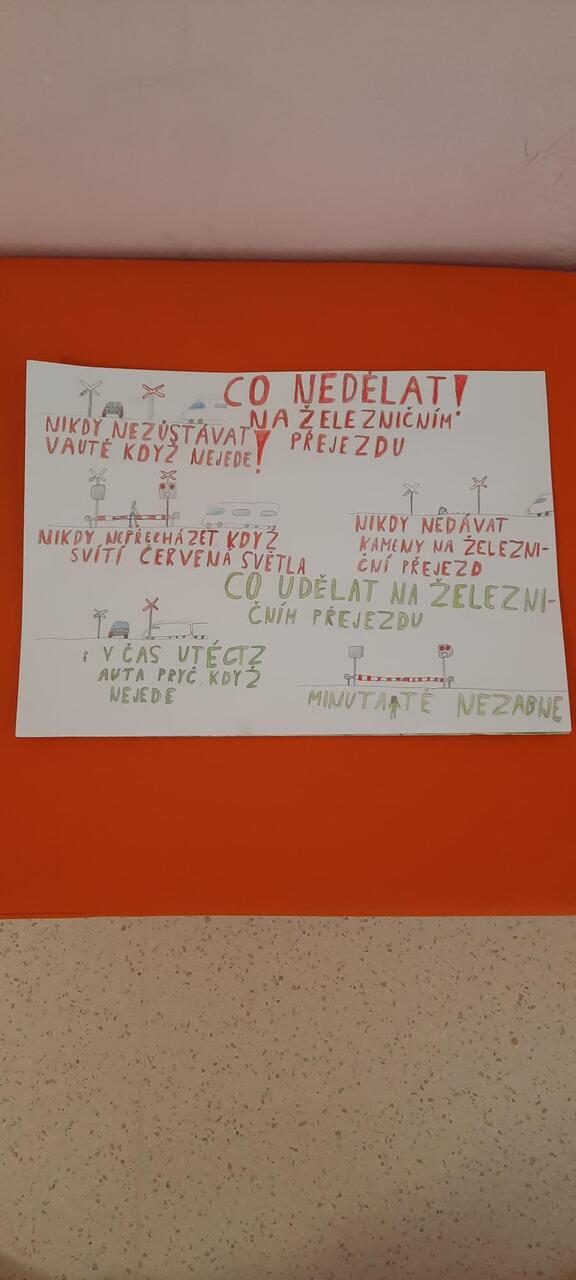 CO NEDĚLAT!
NA ŽELEZNIČNÍM
PŘEJEZDU
NIKDY NEZŮSTÁVAT
VAUTĚ KDYŽ NEJEDE!
NIKDY NEPŘECHÁZET KDYŽ
SVÍTÍ ČERVENÁ SVĚTLA
NIKDY NEDÁVAT
KAMENY NA ŽELEZNI-
ČNÍ PŘEJEZD
CO UDĚLAT NA ŽELEZNI-
ČNÍM PŘEJEZDU
V ČAS UTÉCTZ
AUTA PRYČ, KDYŽ
NEJEDE
MINUTA TĚ NEZABNE